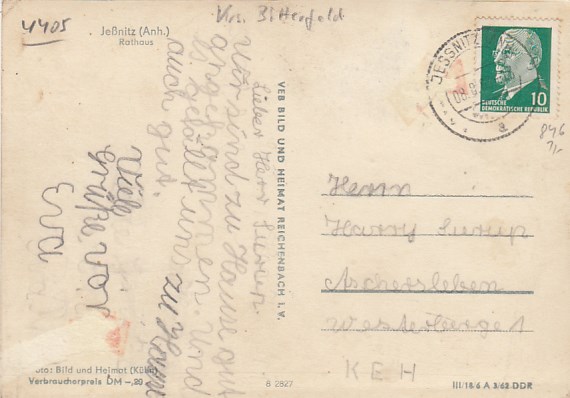 4405
Krs. Bitterfeld
Jeßnitz (Anh.)
Rathaus
Lieber Herr Surup.
wir sind zu Hause gut
angekommen. und
gefällt uns zu Haus
auch gut.
Viele
Grüße von
Eva
VEB BILD UND HEIMAT REICHENBACH I. V.
JESSNITZ
a
10
DEUTSCHE
DEMOKRATISCHE REPUBLIK
846
1,-
Herrn
Harry Surup
Aschersleben
Westerberge 1
KEH
Foto: Bild und Heimat
Verbraucherpreis DM -,20
8 2827
III/18/6 A 3/62 DDR